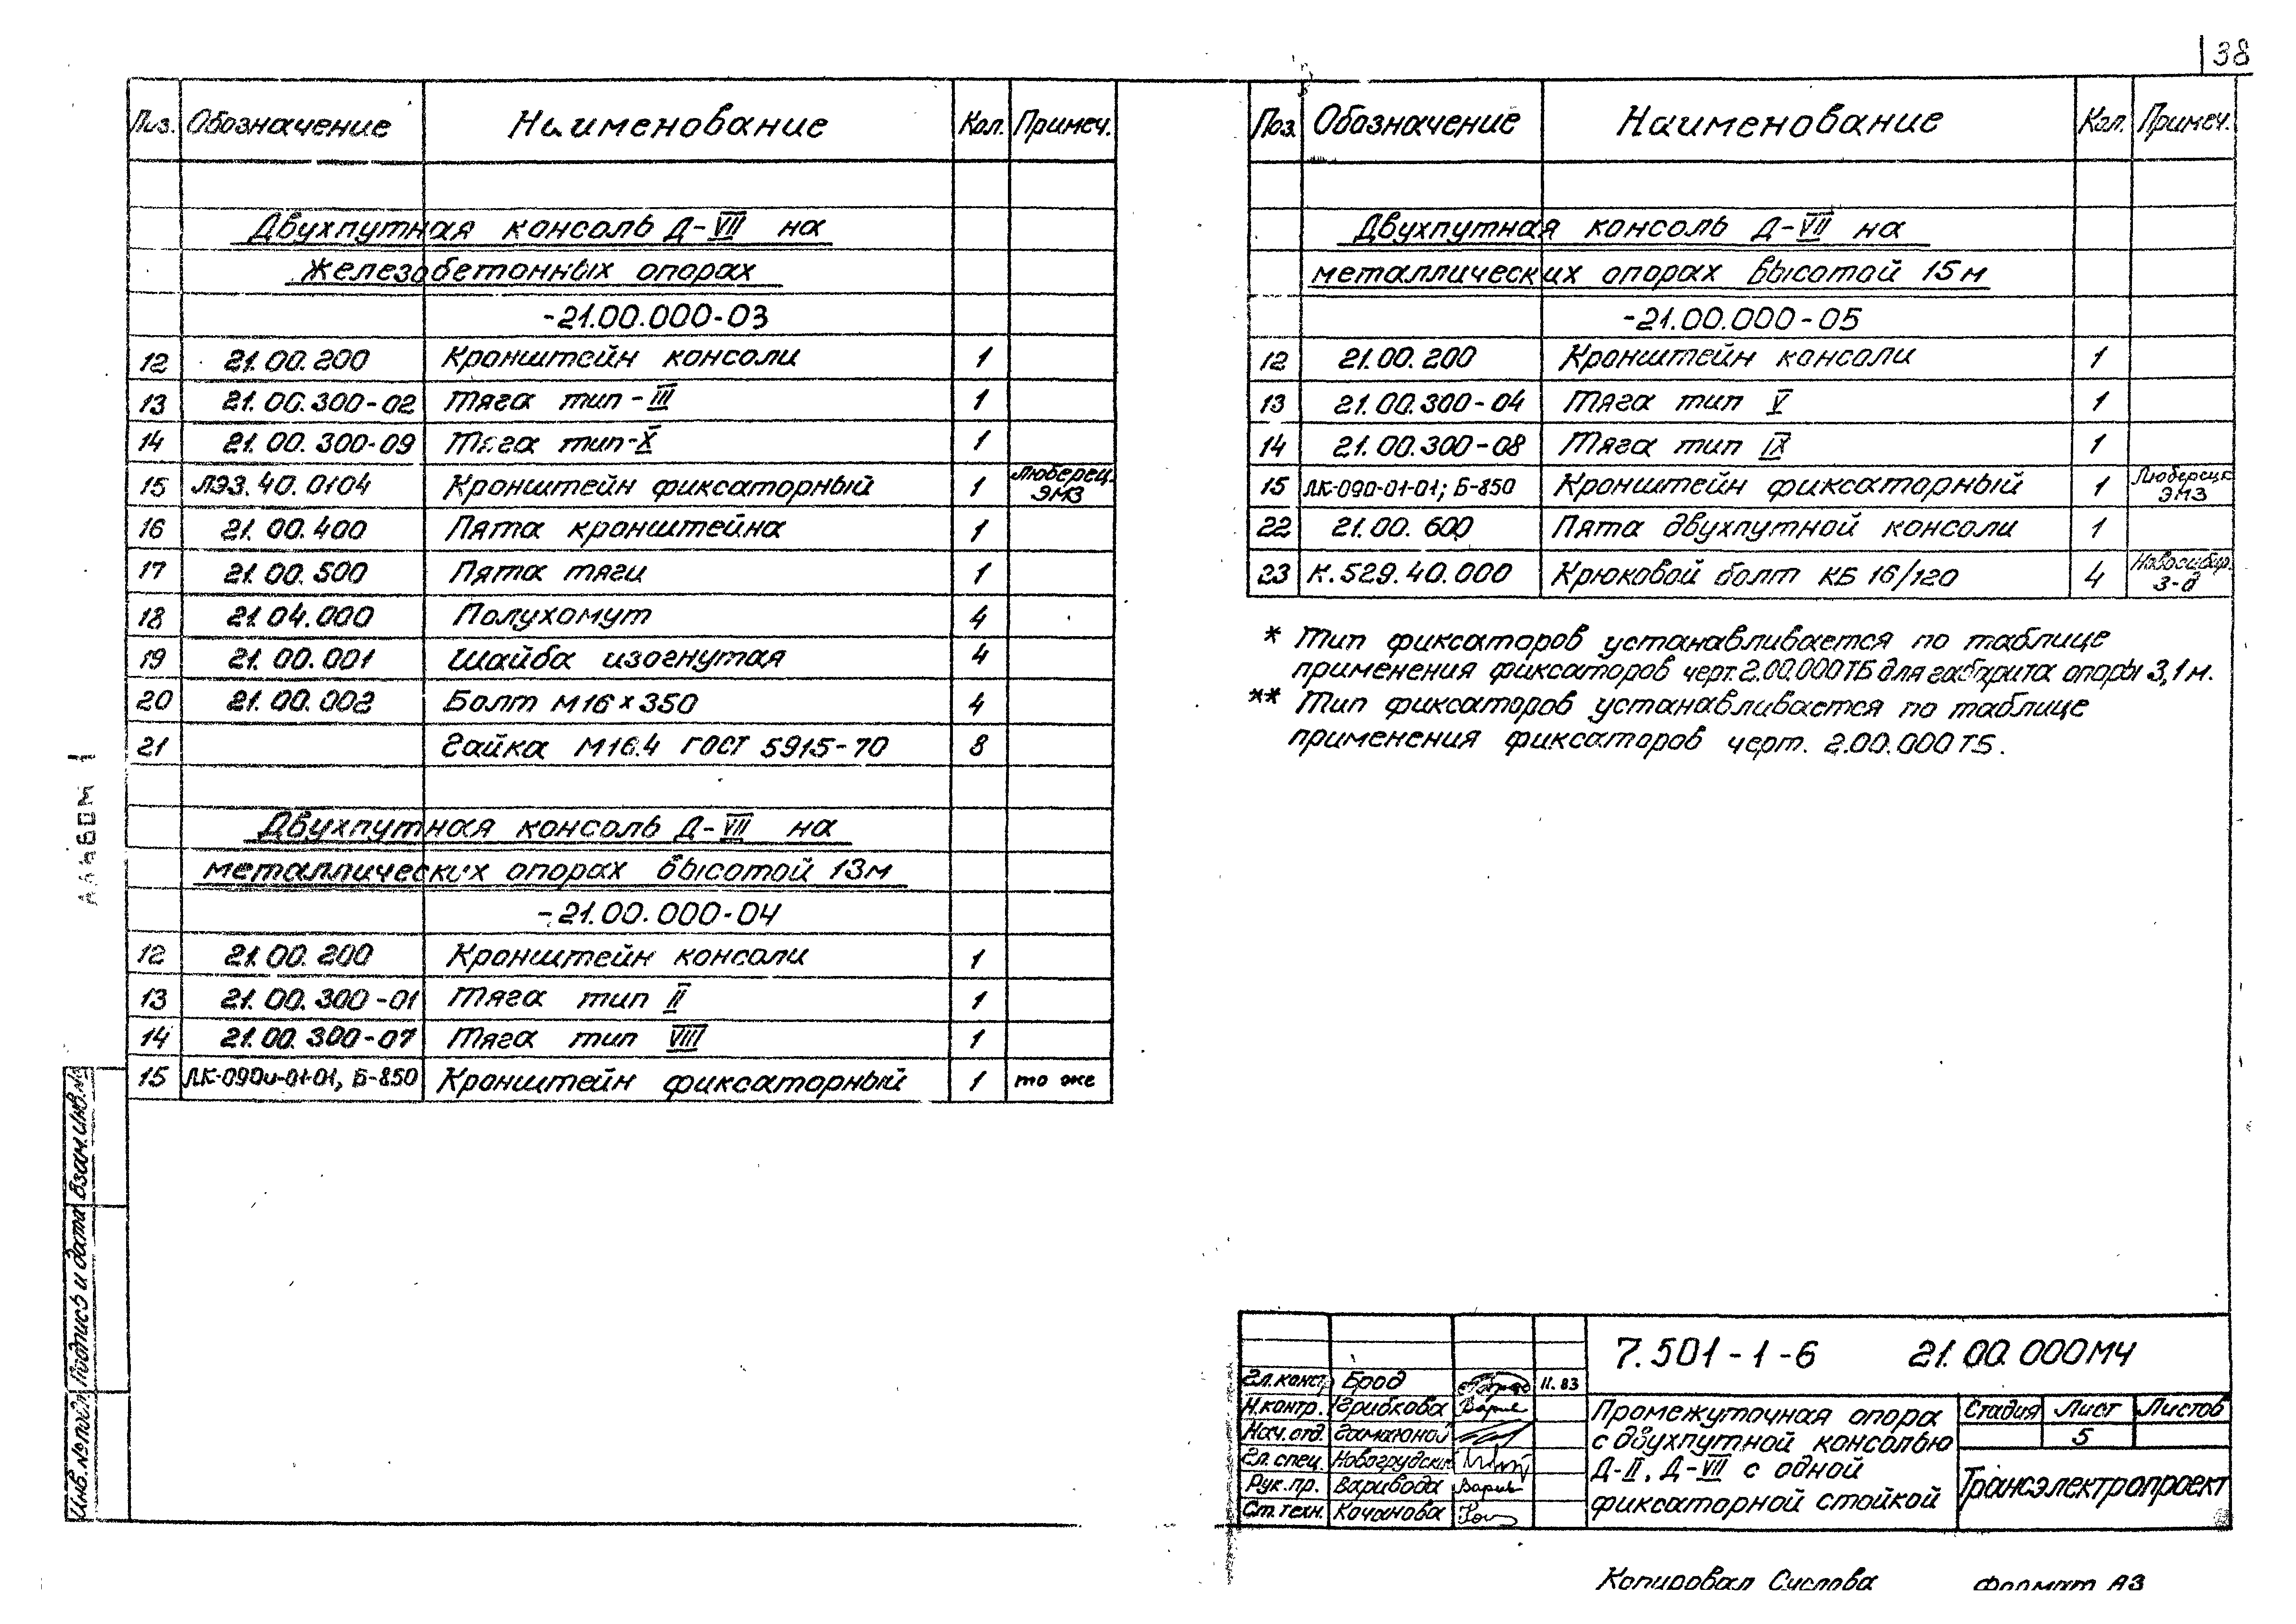 38
Поз. Обозначение Наименование Кол. Примеч.
Двухпутная консоль Д-VII на
железобетонных опорах
-21.00.000-03
12 21.00.200 Кронштейн консоли 1
13 21.00.300-02 Тяга тип-III 1
14 21.00.300-09 Тяга тип-X 1
15 ЛЭЗ.40.0104 Кронштейн фиксаторный 1 Люберец. ЭМЗ
16 21.00.400 Пята кронштейна 1
17 21.00.500 Пята тяги 1
18 21.04.000 Полухомут 4
19 21.00.001 Шайба изогнутая 4
20 21.00.002 Болт М16×350 4
21 Гайка М16.4 ГОСТ 5915-70 8
Двухпутная консоль Д-VII на
металлических опорах высотой 13м
-21.00.000-04
12 21.00.200 Кронштейн консоли 1
13 21.00.300-01 Тяга тип II 1
14 21.00.300-07 Тяга тип VIII 1
15 Б-850 Кронштейн фиксаторный 1 то же
Поз. Обозначение Наименование Кол. Примеч.
Двухпутная консоль Д-VII на
металлических опорах высотой 15м
-21.00.000-05
12 21.00.200 Кронштейн консоли 1
13 21.00.300-04 Тяга тип V 1
14 21.00.300-08 Тяга тип IX 1
15 ЛК-090-01-01; Б-850 Кронштейн фиксаторный 1 Люберецк ЭМЗ
22 21.00.600 Пята двухпутной консоли 1
23 К.529.40.000 Крюковой болт КБ 16/120 4 Новосибир. з-д
* Тип фиксаторов устанавливается по таблице
применения фиксаторов черт.2.00.000ТБ для габарита опоры 3,1м.
** Тип фиксаторов устанавливается по таблице
применения фиксаторов черт. 2.00.000ТБ.
Альбом 1
Инв.№подл. Подпись и дата Взам.инв.№
7.501-1-6 21.00.000МЧ
Гл.констр. Брод 11.83
Н.контр. Грибкова
Нач.отд. Гамаюнов
Гл.спец. Новогрудский
Рук.пр. Варивода
Ст.техн. Качанова
Промежуточная опора
с двухпутной консолью
Д-II, Д-VII с одной
фиксаторной стойкой
Стадия Лист Листов
5
Трансэлектропроект
Копировал Суслова Формат А3